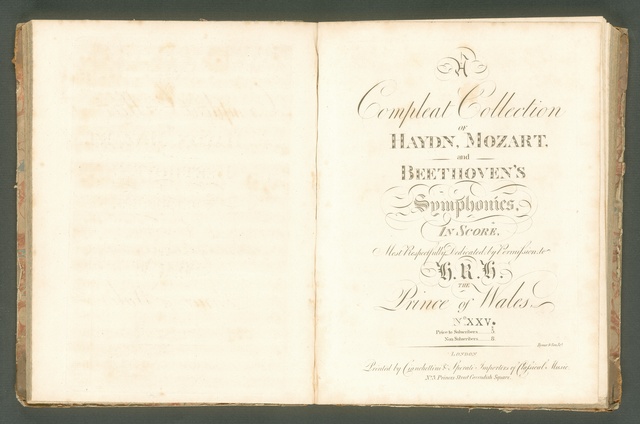 A
Compleat Collection
OF
HAYDN, MOZART,
and
BEETHOVEN'S
Symphonies,
IN SCORE,
Most Respectfully Dedicated by Permission, to
H.R.H.
THE
Prince of Wales.
No. XXV.
Price to Subscribers 5
Non Subscribers 8
LONDON
Printed by Cianchettini & Sperati Importers of Classical Music
No. 5, Princes Street Cavendish Square.